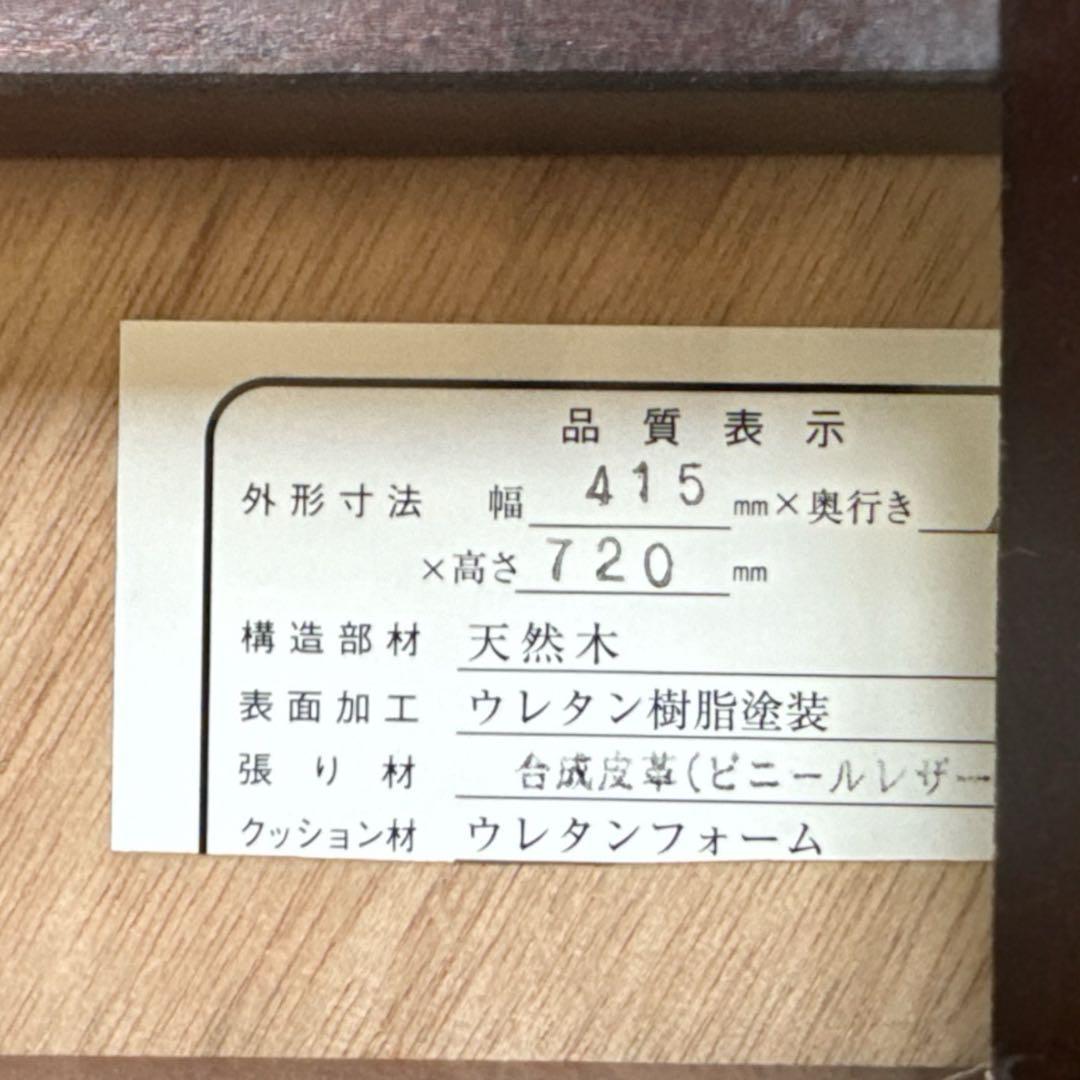 品質表示
外形寸法 幅 415 mm×奥行き
×高さ 720 mm
構造部材 天然木
表面加工 ウレタン樹脂塗装
張り材 合成皮革(ビニールレザー
クッション材 ウレタンフォーム